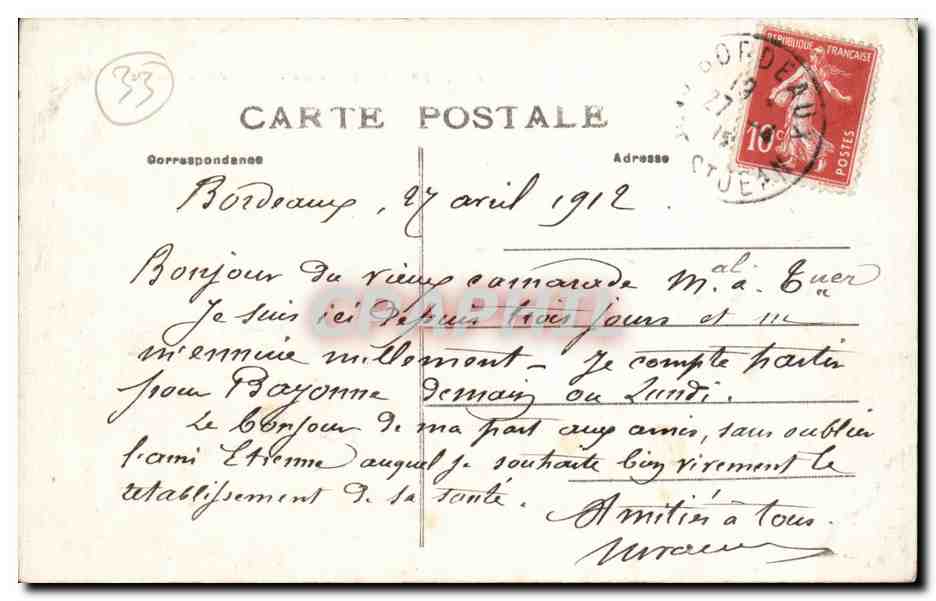 33
CARTE POSTALE
Correspondance
Adresse
BORDEAUX
ST JEAN
REPUBLIQUE FRANÇAISE
10c
POSTES
Bordeaux, 27 avril 1912.
Bonjour du vieux camarade
Je suis ici depuis trois jours et
m'ennuie nullement – Je compte partir
pour Bayonne demain ou Lundi.
Le bonjour de ma part aux amis, sans oublier
l'ami Etienne auquel je souhaite bien vivement le
rétablissement de sa santé.
Amitiés à tous.
CPAPHIL